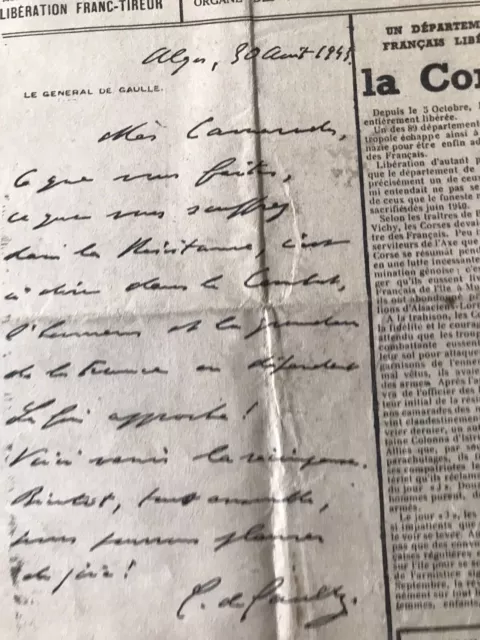 LIBÉRATION FRANC-TIREUR
ORGANE DES
Alger, 30 Août 1943.
LE GENERAL DE GAULLE.
Mes Camarades,
Ce que vous faites,
ce que vous souffrez
dans la Résistance, c'est
à dire dans le Combat,
l'honneur et la grandeur
de la France en dépendent
La fin approche!
Voici venir la récompense.
Bientôt, tous ensemble,
nous pourrons pleurer
de joie!
C. de Gaulle.
UN DÉPARTEM
FRANÇAIS LIBÉ
la Cor
Depuis le 5 Octobre, l
entièrement libérée.
Un des 89 département
tropole échappe ainsi à
nazie pour être enfin ad
des Français.
Libération d'autant p
que le département de
précisément un de ceux
mi entendait ne pas se
de ceux que le funeste
sacrifiés dès juin 1940.
Selon les traîtres de
Vichy, les Corses devai
tre des Français. Peu
serviteurs de l'Axe que
Corse se résumât pend
en une lutte incessante
mination génoise: c'e
ger qu'ils eussent liv
Français de l'île à Mu
ils ont abondonné p
tions d'Alsaciens-Lorr
A la trahison, les Co
la fidélité et le courag
attendu que les troup
combattante eussent
leur sol pour attaque
garnisons de l'ennem
mal vêtus, ils avaie
des armes. Après l'a
va de l'officier des
teur initial de la résis
ses camarades des
vint clandestinement
vrier dernier, un
taine Colonna d'Istr
Alliés que, par
parachutages, ils
ses compatriotes le
tériel qu'ils réclam
du jour « J ». Des
jeunes purent,
armés.
Le jour « J », les
s impatients que
le voir se lever. A
pas que des conv
çaises régulières
sur l'île pour se
de l'armistice sig
Septembre, la
nement sur tout
femmes, enfants